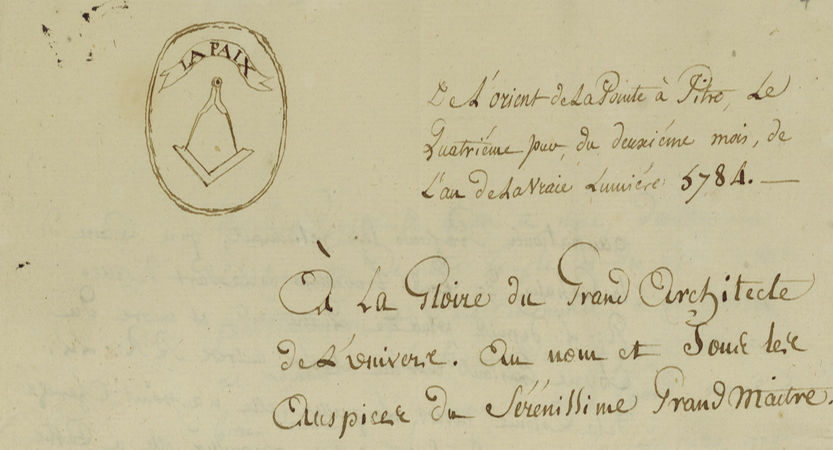 LA PAIX
De L'orient de La Pointe à Pitre, Le
Quatriéme jour, du deuxiéme mois, de
L'an de La Vraie Lumiére 5784.—
À La Gloire du Grand Architecte
de L'univers. Au nom et Sous les
Auspices du Sérénissime Grand Maitre.